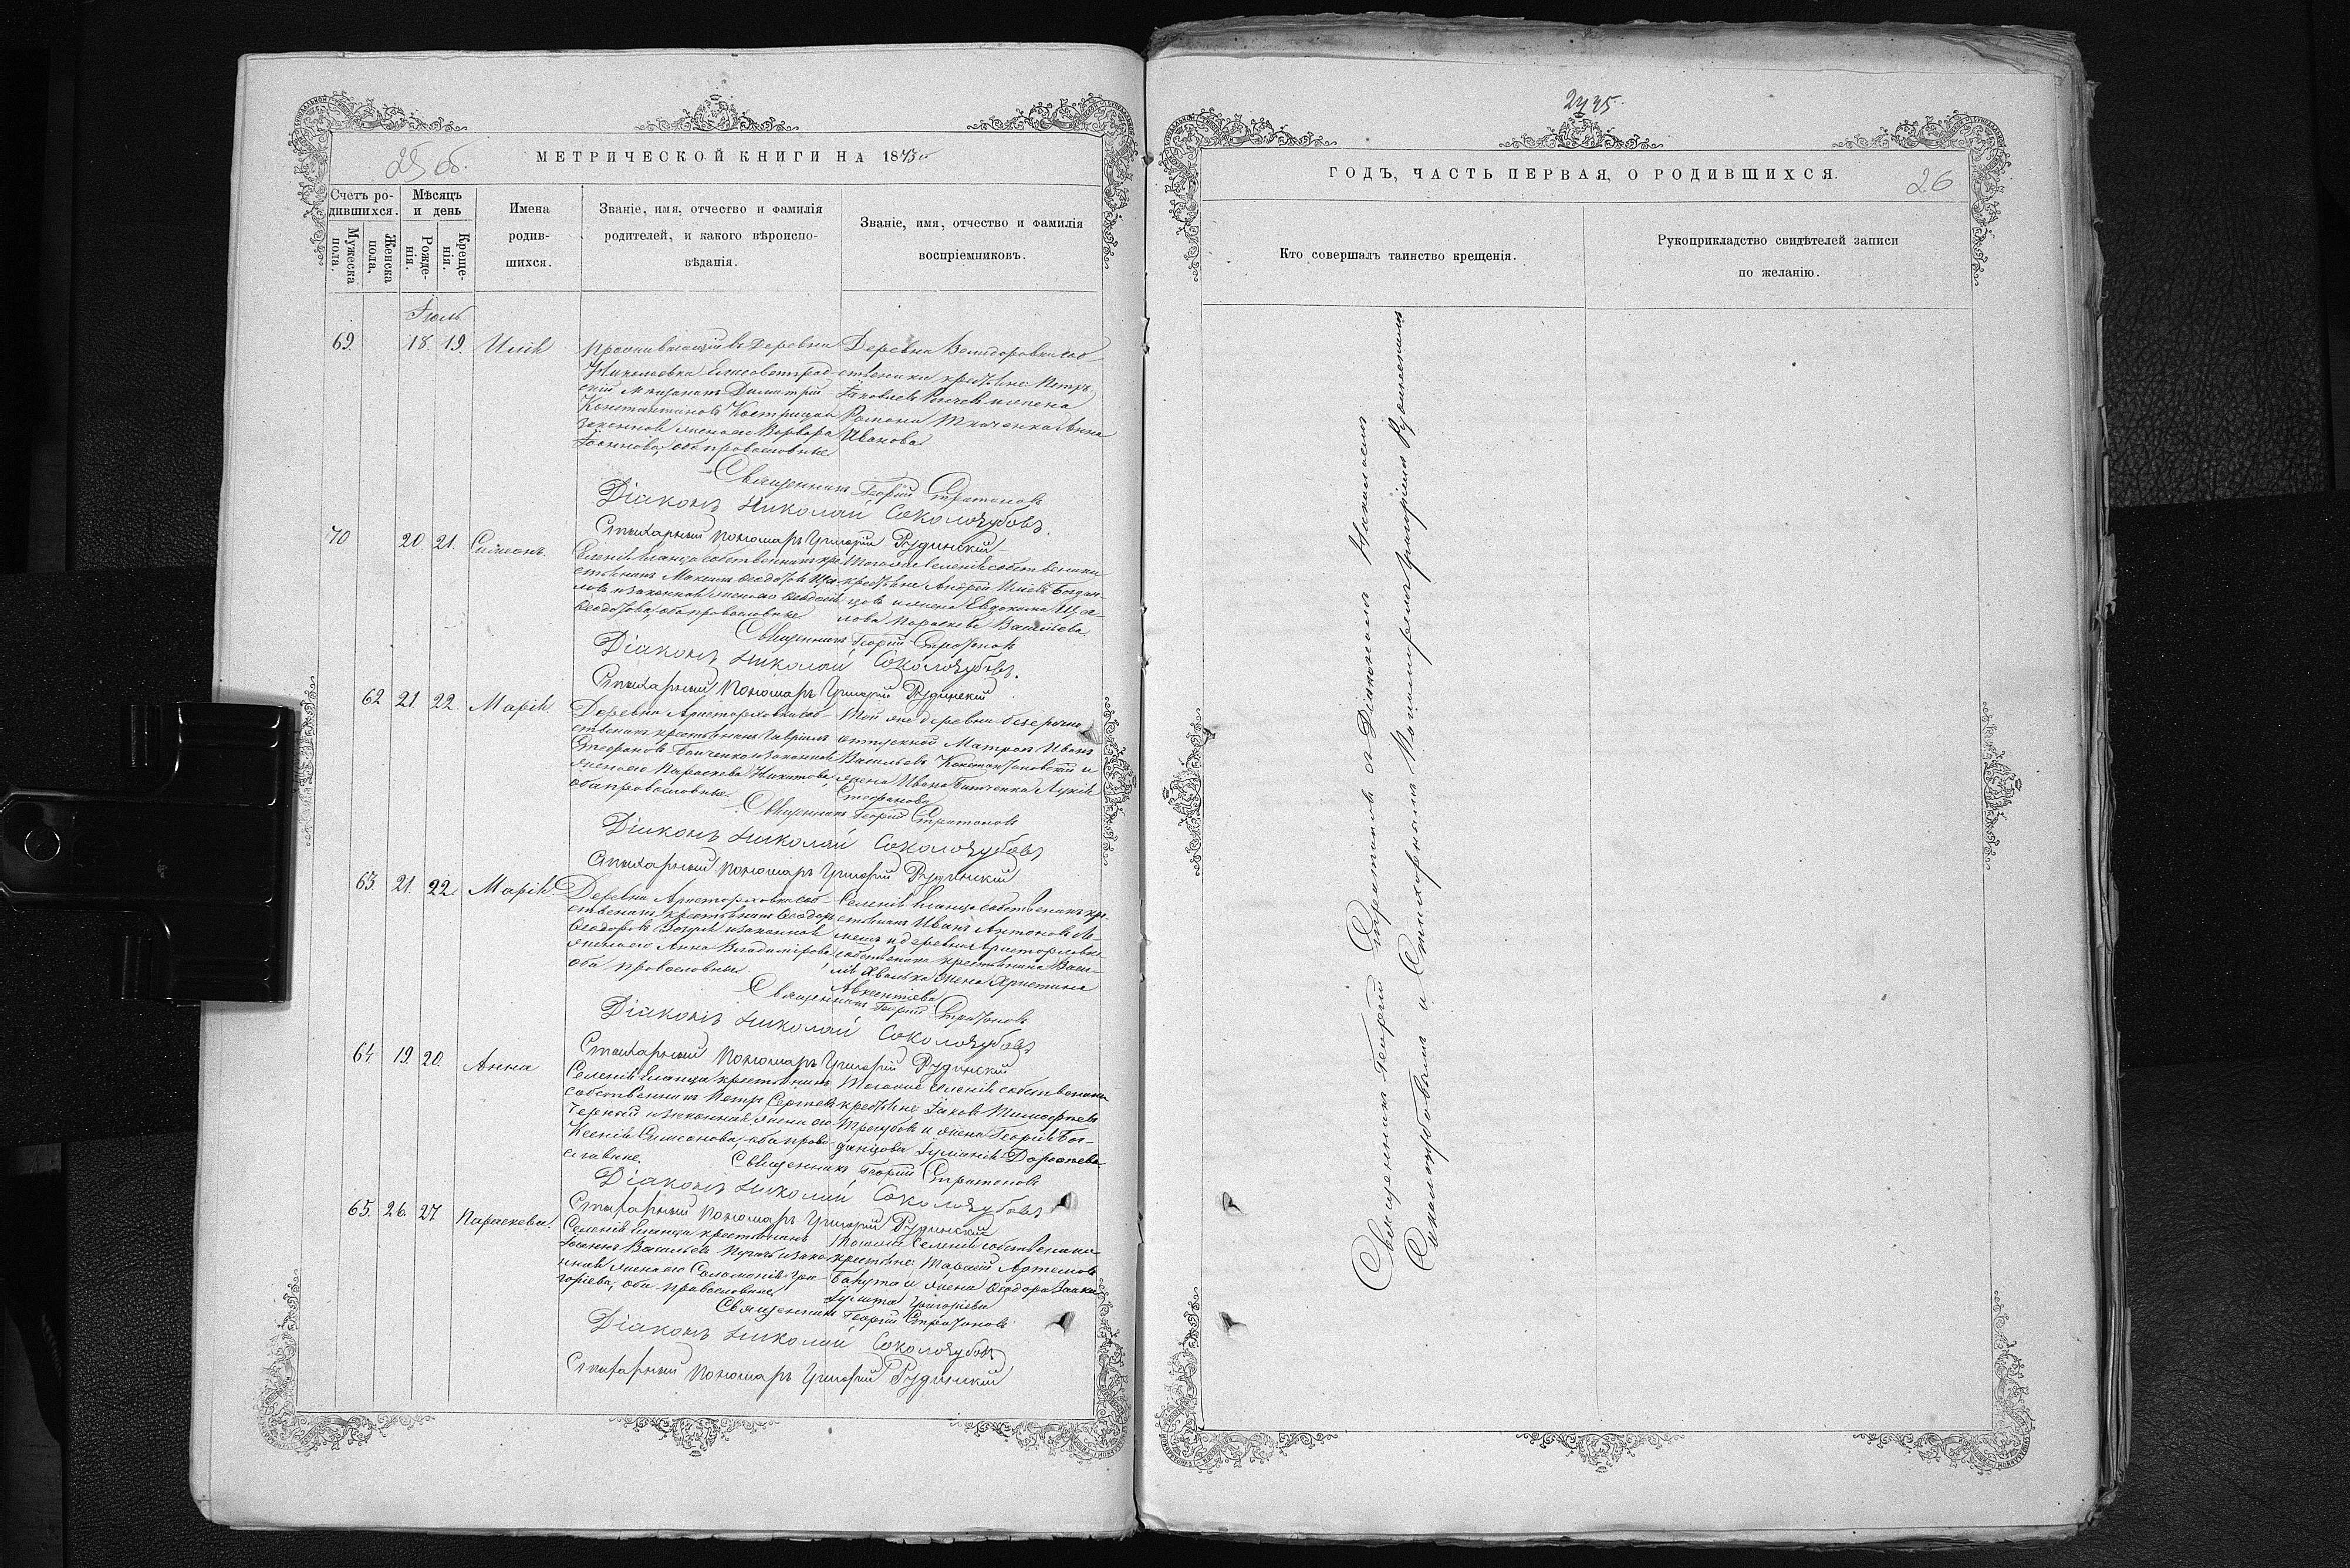 25 об.
МЕТРИЧЕСКОЙ КНИГИ НА 1873й
Счетъ ро-
дившихся.
Мужеска
пола.
Женска
пола.
Мѣсяцъ
и день
Рожде-
нія.
Креще-
нія.
Имена
родив-
шихся.
Званіе, имя, отчество и фамилія
родителей, и какого вѣроиспо-
вѣданія.
Званіе, имя, отчество и фамилія
воспріемниковъ.
Іюль
69. 18. 19. Илія
Проживающій въ Деревни
Николаевка Елисоветград-
скій мѣщанинъ Димитрій
Константиновъ
законная жена его Варвара
Іоаннова, оба православные
Деревни соб-
ственники крестьяне: Петръ
Іаковлевъ и жена
Романа Ткаченка Анна
Иванова
Священникъ Георгій Стратоновъ
Діаконъ Николай Соколозубовъ.
Стихарный Пономарь Григорій Рудинскій
70 20. 21. Симеонъ.
Селенія Еланца собственникъ кре-
стьянинъ Максимъ Ѳеодотовъ Ща-
ловъ и законная жена его Ѳеодосія
Ѳеодотова, оба православные
Тогоже селенія собственники
крестьяне Андрей Илія Богдан-
цовъ и жена Евдокима Ща-
лова Параскева Васильева.
Священникъ Георгій Стратоновъ
Діаконъ Николай Соколозубовъ.
Стихарный Пономарь Григорій Рудинскій
62 21. 22. Марія.
Деревни Аристарховки соб-
ственникъ крестьянинъ Гавріилъ
Стефановъ и законная
жена его Параскева Никитова,
оба православные.
Той же деревни безсрочно
отпускной Матросъ Иванъ
Васильевъ и
жена Ивана Лукія
Стефанова
Священникъ Георгій Стратоновъ
Діаконъ Николай Соколозубовъ
Стихарный Пономарь Григорій Рудинскій
63. 21. 22. Марія.
Деревни Аристарховки соб-
ственникъ крестьянинъ Ѳеодоръ
Ѳеодоровъ и законная
жена его Анна Владимірова
оба православные
Селенія Еланца собственникъ кре-
стьянинъ Иванъ Антоновъ
и деревни Аристарховки
собственника крестьянина Васи-
лія жена Христина
Авксентіева
Священникъ Георгій Стратоновъ
Діаконъ Николай Соколозубовъ
Стихарный Пономарь Григорій Рудинскій
64 19 20. Анна
Селенія Еланца крестьянинъ
собственникъ Петръ Сергіевъ
Черный и законная жена его
Ксенія Симеонова, оба право-
славные.
Тогоже селенія собственники
крестьяне: Іаковъ Тимофеевъ
Трегубовъ и жена Георгія Бог-
данцова Іуліанія Дороѳеева
Священникъ Георгій Стратоновъ
Діаконъ Николай Соколозубовъ
Стихарный Пономарь Григорій Рудинскій
65. 26. 27 Параскева.
Селенія Еланца крестьянинъ
Іоаннъ Васильевъ и зако-
нная жена его Соломонія Гри-
горіева, оба православные
Тогоже Селенія собственники
крестьяне: Тарасій Артемовъ
и жена Ѳеодора
Григоріева
Священникъ Георгій Стратоновъ
Діаконъ Николай Соколозубовъ
Стихарный Пономарь Григорій Рудинскій
ГОДЪ, ЧАСТЬ ПЕРВАЯ, О РОДИВШИХСЯ.
26
Кто совершалъ таинство крещенія.
Рукоприкладство свидѣтелей записи
по желанію.
Священникъ Георгій Стратоновъ съ Діакономъ Николаемъ
Соколозубовымъ и Стихарнымъ Пономаремъ Григоріемъ Рудинскимъ